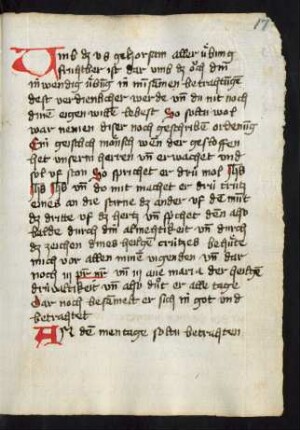 17
Umb dz vs gehorsam aller übung
fruchtber ist dar vmb dz och din
inwendig übung in miſamen betrachtunge
dest verdienlicher werde vn̄ du nit noch
dinē eigen wille lebest So soltu wol
war nemen diser noch geschribē ordenūg
Ein geistlich mönsch wen der geschloffen
het vnserm herren vn̄ erwachet vnd
sol vf ston So sprichet er drü mol Jhs
Jhs Jhs vn̄ do mit machet er drü crütz
eines an die stirne dz ander vf dē munt
dz dritte vf dz hertz vn̄ spchet den also
balde durch din almechtikeit vn̄ durch
dz zeichen dines heilgē crützes behüte
mich vor allen minē vigenden vn̄ dar
noch iij pr̄ nr̄ vn̄ iij aue maria der heilgē
drüualtikeit vn̄ also dut er alle tage
Dar noch besamelt er sich in got vnd
betrachtet
An dē mentage soltu betrachten